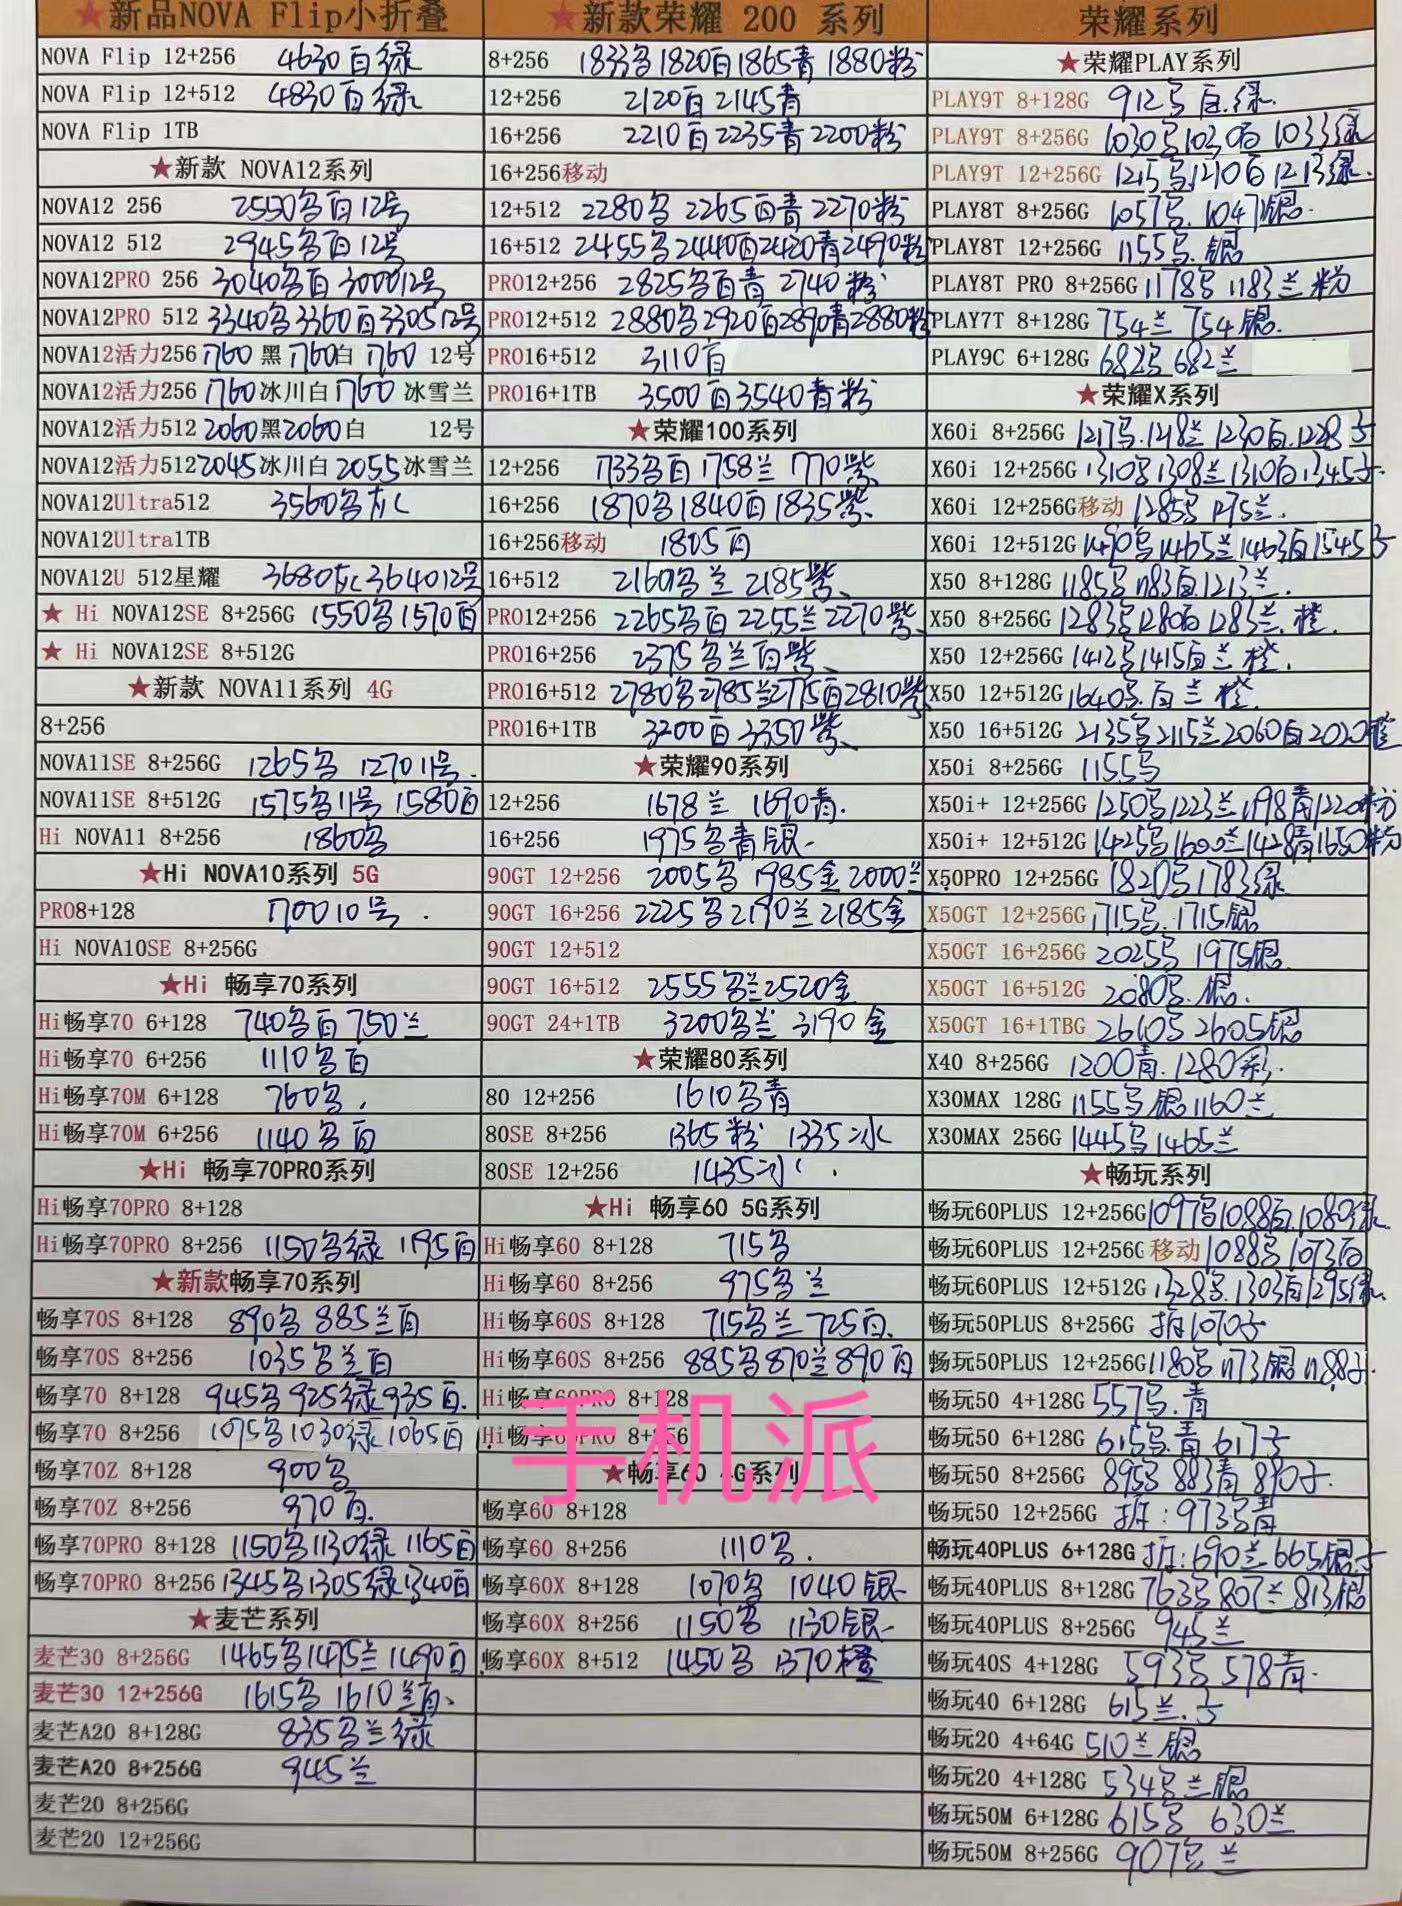 ★新品NOVA Flip小折叠
NOVA Flip 12+256 4630百绿
NOVA Flip 12+512 4830百绿
NOVA Flip 1TB
★新款 NOVA12系列
NOVA12 256 2550名百12号
NOVA12 512 2945名百12号
NOVA12PRO 256 3040名百 300012号
NOVA12PRO 512 3340名3360百330512号
NOVA12活力256 1760黑1760白1760 12号
NOVA12活力256 1760冰川白1760 冰雪兰
NOVA12活力512 2060黑2060白 12号
NOVA12活力512 2045冰川白2055冰雪兰
NOVA12Ultra512 3560名灰
NOVA12Ultra1TB
NOVA12U 512星耀 3680灰364012号
★ Hi NOVA12SE 8+256G 1550名1570百
★ Hi NOVA12SE 8+512G
★新款 NOVA11系列 4G
8+256
NOVA11SE 8+256G 1265名 127011号.
NOVA11SE 8+512G 1575名11号 1580百
Hi NOVA11 8+256 1860名
★Hi NOVA10系列 5G
PRO8+128 170010号.
Hi NOVA10SE 8+256G
★Hi 畅享70系列
Hi畅享70 6+128 740名百750兰
Hi畅享70 6+256 1110名百
Hi畅享70M 6+128 760名.
Hi畅享70M 6+256 1140名百
★Hi 畅享70PRO系列
Hi畅享70PRO 8+128
Hi畅享70PRO 8+256 1150名绿 1195百
★新款畅享70系列
畅享70S 8+128 890名 885兰百
畅享70S 8+256 1035名兰百
畅享70 8+128 945名925绿935百.
畅享70 8+256 1075名1030绿1065百.
畅享70Z 8+128 900名
畅享70Z 8+256 970百.
畅享70PRO 8+128 1150名1130绿 1165百
畅享70PRO 8+256 1345名1305绿1340百
★麦芒系列
麦芒30 8+256G 1465名1475兰1490百.
麦芒30 12+256G 1615名1610兰百、
麦芒A20 8+128G 835名兰绿
麦芒A20 8+256G 945兰
麦芒20 8+256G
麦芒20 12+256G
★新款荣耀 200 系列
8+256 1833名1820百1865青1880粉
12+256 2120百2145青
16+256 2210百2235青2200粉
16+256移动
12+512 2280名2265百青2270粉
16+512 2455名2440百2420青2490粉
PRO12+256 2825名百青 2740粉
PRO12+512 2880名2920百2890青2880粉
PRO16+512 3110百
PRO16+1TB 3500百3540青粉
★荣耀100系列
12+256 1733名百1758兰 1770紫.
16+256 1870名1840百1835紫.
16+256移动 1805百
16+512 2160名兰 2185紫.
PRO12+256 2265名百2255兰2270紫.
PRO16+256 2375名兰百紫.
PRO16+512 2780名2785兰2775百2810紫
PRO16+1TB 3200百3350紫.
★荣耀90系列
12+256 1678兰 1690青.
16+256 1975名青银.
90GT 12+256 2005名 1985金2000兰.
90GT 16+256 2225名2190兰2185金
90GT 12+512
90GT 16+512 2555名兰2520金
90GT 24+1TB 3200名兰 3190金
★荣耀80系列
80 12+256 1610名青
80SE 8+256 1365粉 1335冰
80SE 12+256 1435冰.
★Hi 畅享60 5G系列
Hi畅享60 8+128 715名
Hi畅享60 8+256 975名兰
Hi畅享60S 8+128 715名兰725百.
Hi畅享60S 8+256 885名870兰890百
Hi畅享60PRO 8+128
Hi畅享60PRO 8+256
手机派
★畅享60 4G系列
畅享60 8+128
畅享60 8+256 1110名.
畅享60X 8+128 1070名 1040银
畅享60X 8+256 1150名 1130银
畅享60X 8+512 1450名 1370橙
荣耀系列
★荣耀PLAY系列
PLAY9T 8+128G 912名百.绿.
PLAY9T 8+256G 1030名1030百 1033绿
PLAY9T 12+256G 1215名1210百1213绿.
PLAY8T 8+256G 1057名.1047银.
PLAY8T 12+256G 1155名.银
PLAY8T PRO 8+256G 1178名1183兰粉
PLAY7T 8+128G 754兰754银.
PLAY9C 6+128G 682名682兰
★荣耀X系列
X60i 8+256G 1217名.1218兰1230百.1228子
X60i 12+256G 1310名1308兰1310百1345子.
X60i 12+256G移动 1285名1275兰.
X60i 12+512G 1490名1465兰1463百1545子
X50 8+128G 1185名1183百.1213兰.
X50 8+256G 1283名1280百1283兰.橙.
X50 12+256G 1412名1415百兰橙.
X50 12+512G 1640名.百兰橙.
X50 16+512G 2135名2115兰2060百2020橙
X50i 8+256G 1155名
X50i+ 12+256G 1250名1223兰1198青1220粉
X50i+ 12+512G 1425名1600兰1428青1650粉
X50PRO 12+256G 1820名1783绿
X50GT 12+256G 1715名.1715银
X50GT 16+256G 2025名 1975银
X50GT 16+512G 2080名.银.
X50GT 16+1TBG 2610名2605银
X40 8+256G 1200青.1280彩.
X30MAX 128G 1155名银1160兰
X30MAX 256G 1445名1465兰
★畅玩系列
畅玩60PLUS 12+256G 1097名1088百.1080绿.
畅玩60PLUS 12+256G 移动 1088名1073百
畅玩60PLUS 12+512G 1328名.1303百1295绿.
畅玩50PLUS 8+256G 拆1070子
畅玩50PLUS 12+256G 1180名1173银1188子.
畅玩50 4+128G 557名.青
畅玩50 6+128G 615名.青617子
畅玩50 8+256G 895名883青890子.
畅玩50 12+256G 拆:973名青
畅玩40PLUS 6+128G 拆:690兰665银子
畅玩40PLUS 8+128G 763名807兰813银
畅玩40PLUS 8+256G 945兰
畅玩40S 4+128G 593名578青.
畅玩40 6+128G 615兰.子
畅玩20 4+64G 510兰银
畅玩20 4+128G 534名兰银
畅玩50M 6+128G 615名 630兰
畅玩50M 8+256G 907名兰